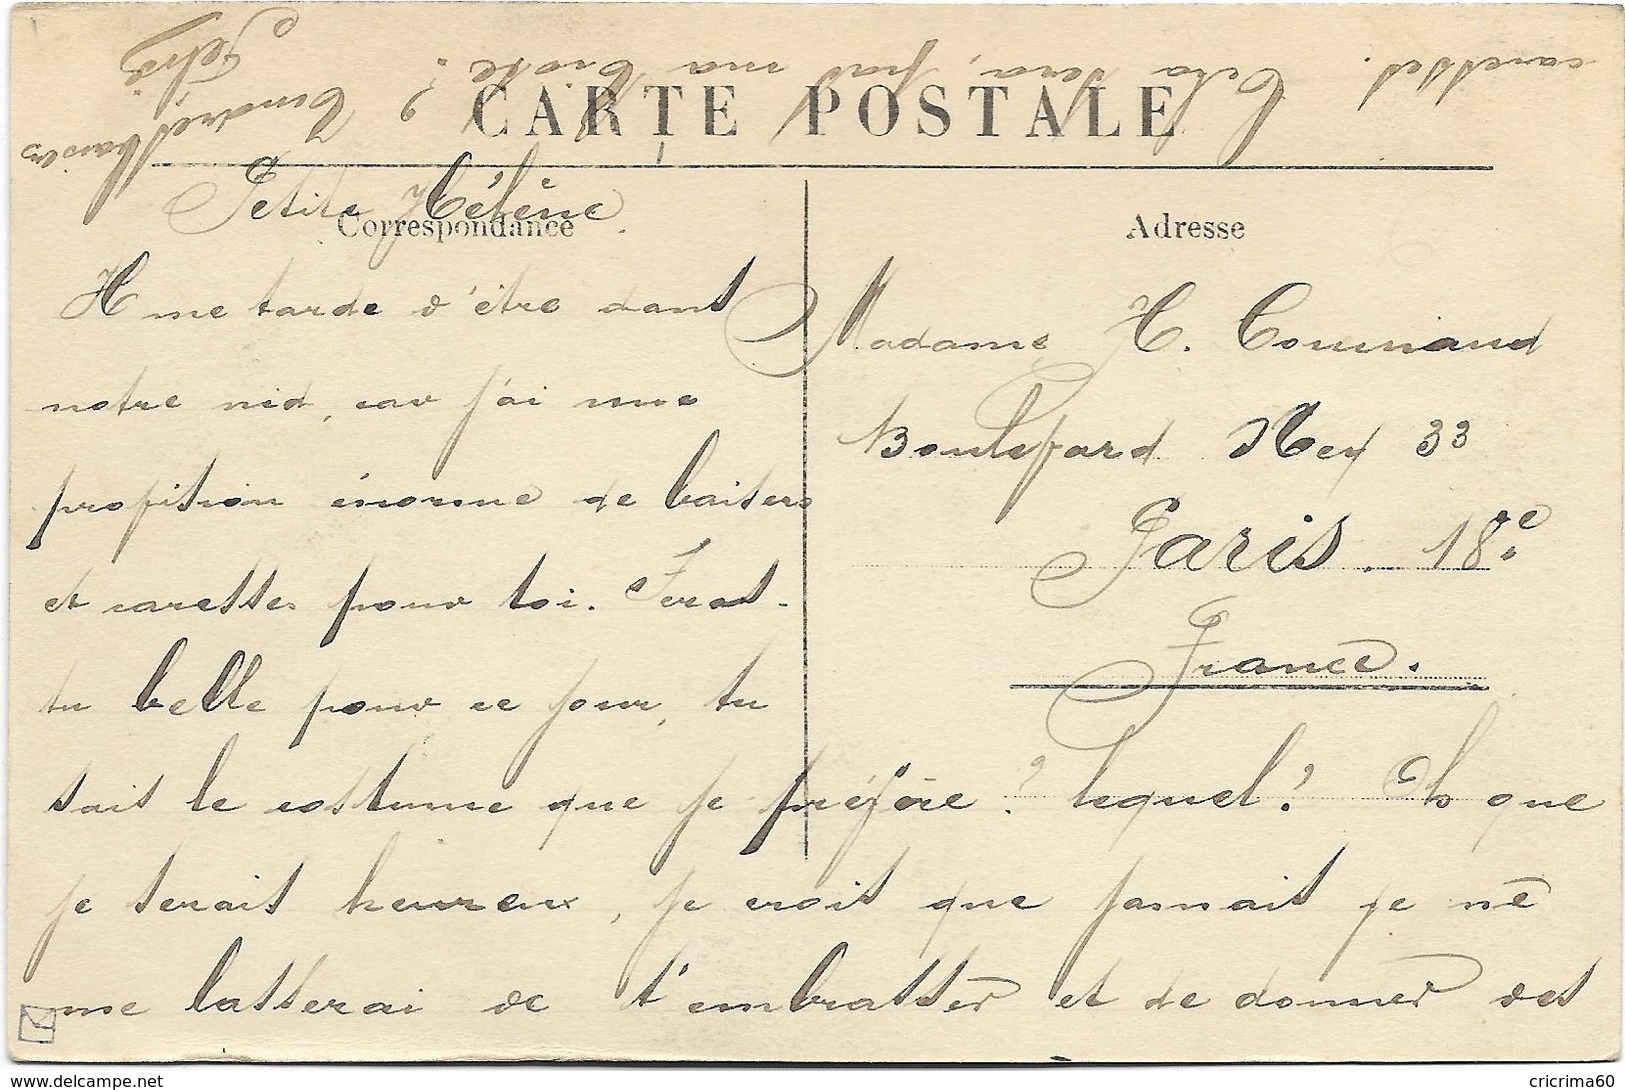 CARTE POSTALE
Correspondance
Adresse
Petite Hélène.
Il me tarde d'être dans
notre nid, car j'ai une
provision énorme de baisers
et caresses pour toi. Seras-
tu belle pour ce jour, tu
sais le costume que je préfère? lequel? Oh que
je serais heureux, je crois que jamais je ne
me lasserai de t'embrasser et de donner des
caresses. Cela sera, pas ma
? Tendres baisers
Madame H.
Boulevard Ney 33
Paris. 18e
France.
http://www.delcampe.net
cricrima60